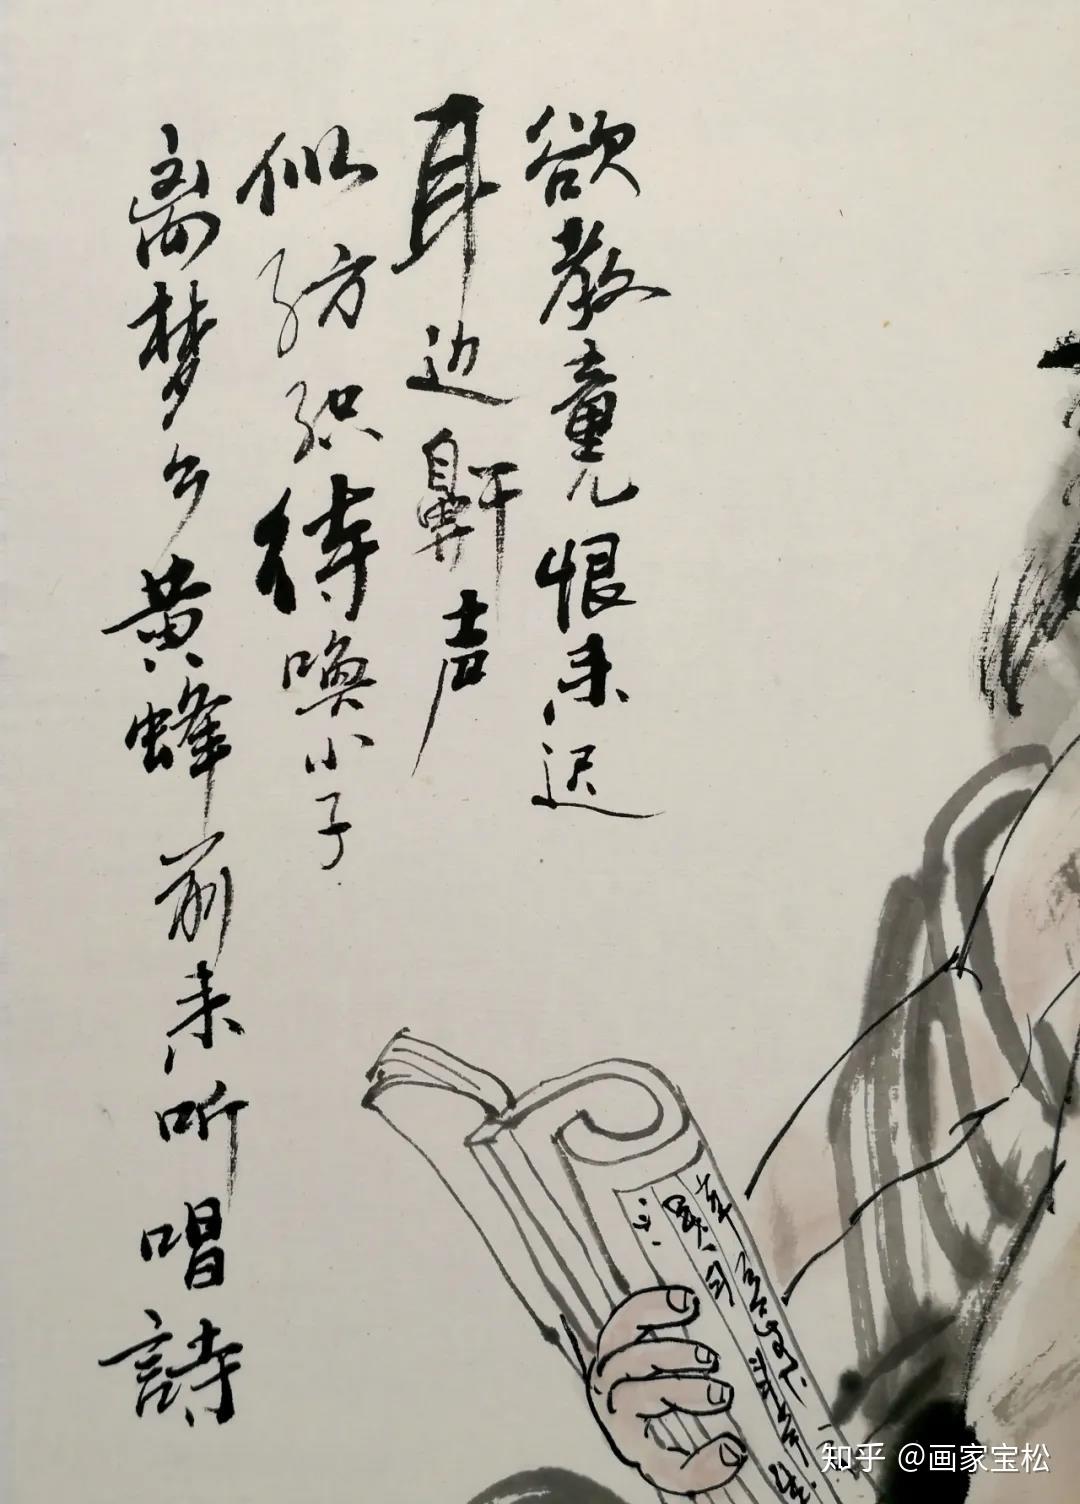 欲教童儿恨未迟
耳边鼾声
似纺织待唤小子
离梦乡黄蜂前来听唱詩
知乎 @画家宝松